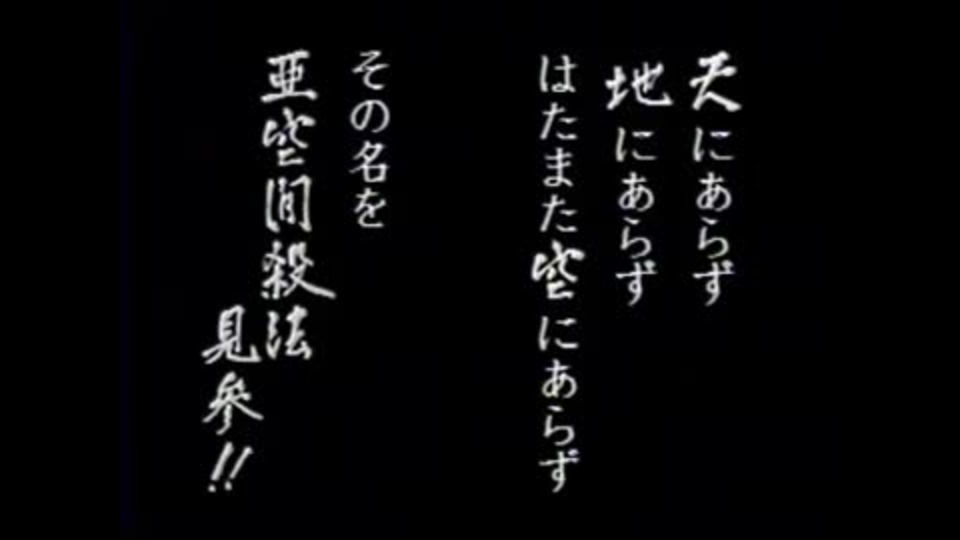 天にあらず
地にあらず
はたまた空にあらず
その名を
亜空間殺法
見参!!